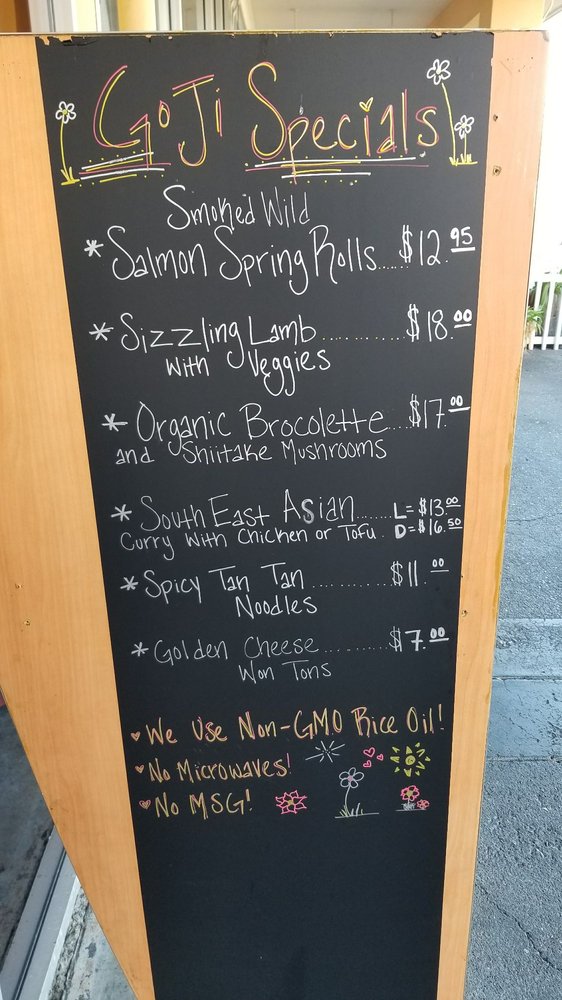 GoJi Specials
Smoked Wild
* Salmon Spring Rolls...... $12.95
* Sizzling Lamb............ $18.00
with Veggies
* Organic Brocolette.... $17.00
and Shiitake Mushrooms
* South East Asian........ L = $13.00
Curry With Chicken or Tofu . D = $16.50
* Spicy Tan Tan ........... $11.00
Noodles
* Golden Cheese ............ $7.00
Won Tons
We Use Non-GMO Rice Oil!
No Microwaves!
No MSG!